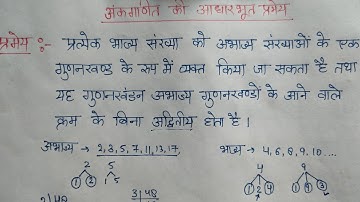 अंकगणित की आधारभूत प्रमेय
प्रमेय :- प्रत्येक भाज्य संख्या को अभाज्य संख्याओं के एक
गुणनखण्ड के रूप में व्यक्त किया जा सकता है तथा
यह गुणनखंडन अभाज्य गुणनखण्डों के आने वाले
क्रम के बिना अद्वितीय होता है।
अभाज्य → 2, 3, 5, 7, 11, 13, 17, भाज्य → 4, 6, 8, 9, 10 ....
2 5 4 9
1 2 1 5 1 2 4 1 9 3
2|48 3|48